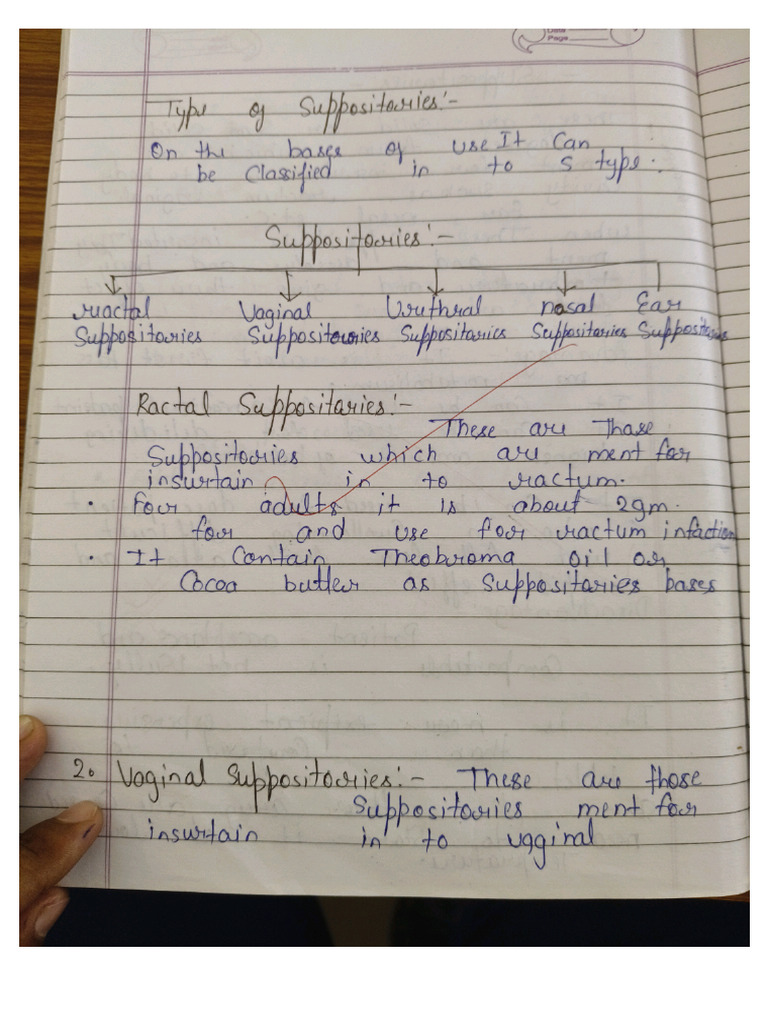 Date
Page
Type of Suppositories:-
On the bases of use It Can
be Classified in to 5 type.
Suppositories:-
ractal Vaginal Urethral nasal Ear
Suppositories Suppositories Suppositories Suppositories Suppositories
Ractal Suppositaries:-
These are Those
Suppositories which are ment for
insurtain in to ractum.
• For adults it is about 2gm.
for and use for ractum infaction
• It Contain Theobroma oil or
Cocoa butter as Suppositories bases
2. Vaginal Suppositories:- These are those
Suppositories ment for
insurtain in to vaginal